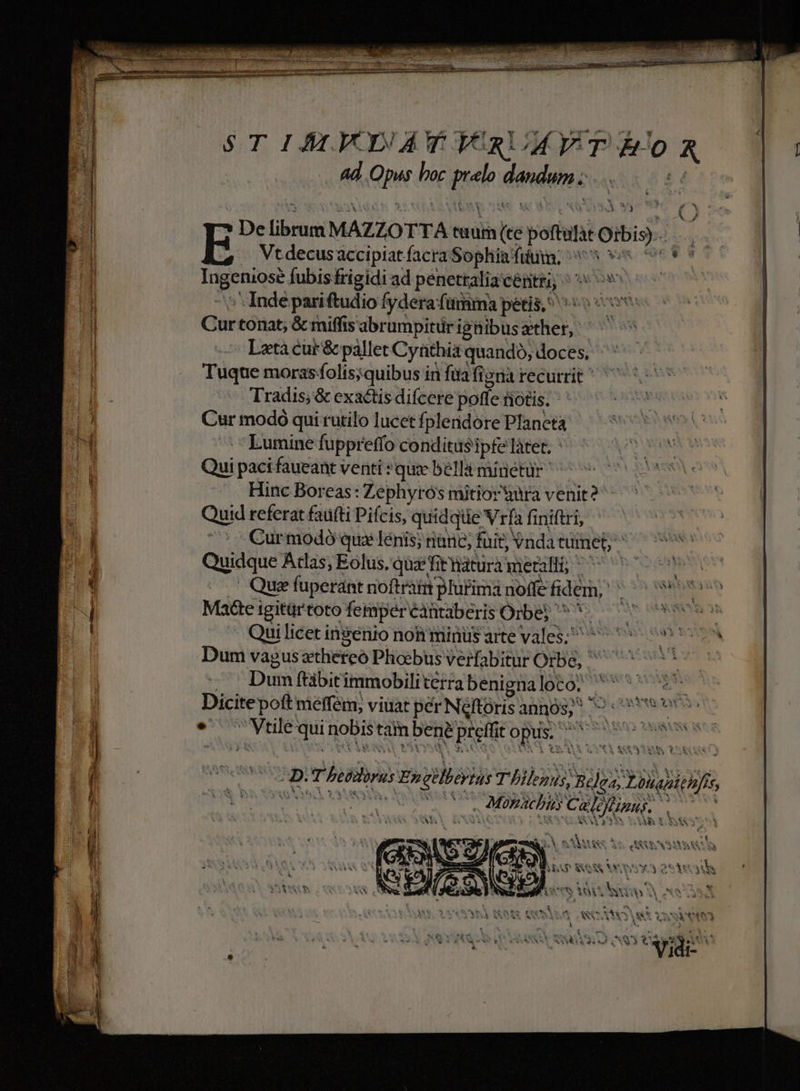 STIMVLVNATVR AVTHOR
ad Opus hoc prelo dandum.
E De librum MAZZOTTA tuum (te poſtulat Orbis)
Vt decus accipiat ſacra Sophia ſuum.
Ingeniosè ſubis frigidi ad penetralia centri,
Inde pari ſtudio ſydera ſumma petis,
Cur tonat, & miſſis abrumpitur ignibus æther,
Læta cur & pallet Cynthia quandò, doces,
Tuque moras ſolis, quibus in ſua ſigna recurrit
Tradis, & exactis diſcere poſſe notis.
Cur modò qui rutilo lucet ſplendore Planeta
Lumine ſuppreſſo conditus ipſe latet.
Qui paci faueant venti: quæ bella minetur
Hinc Boreas: Zephyros mitior aura venit?
Quid referat fauſti Piſcis, quidque Vrſa ſiniſtri,
Cur modò quæ lenis, nunc, fuit, vnda tumet,
Quidque Atlas, Eolus, quæ fit natura metalli,
Quæ ſuperant noſtram plurima noſſe fidem,
Macte igitur toto ſemper cantaberis Orbe,
Qui licet ingenio non minùs arte vales.
Dum vagus æthereò Phœbus verſabitur Orbe,
Dum ſtabit immobili terra benigna loco,
Dicite poſt meſſem, viuat per Neſtoris annos,
Vtile qui nobis tam benè preſſit opus.
D. Theodorus Engelbertus Thilenus, Belga, Louaniensis,
Monachus Cæleſtinus.
Vidi-